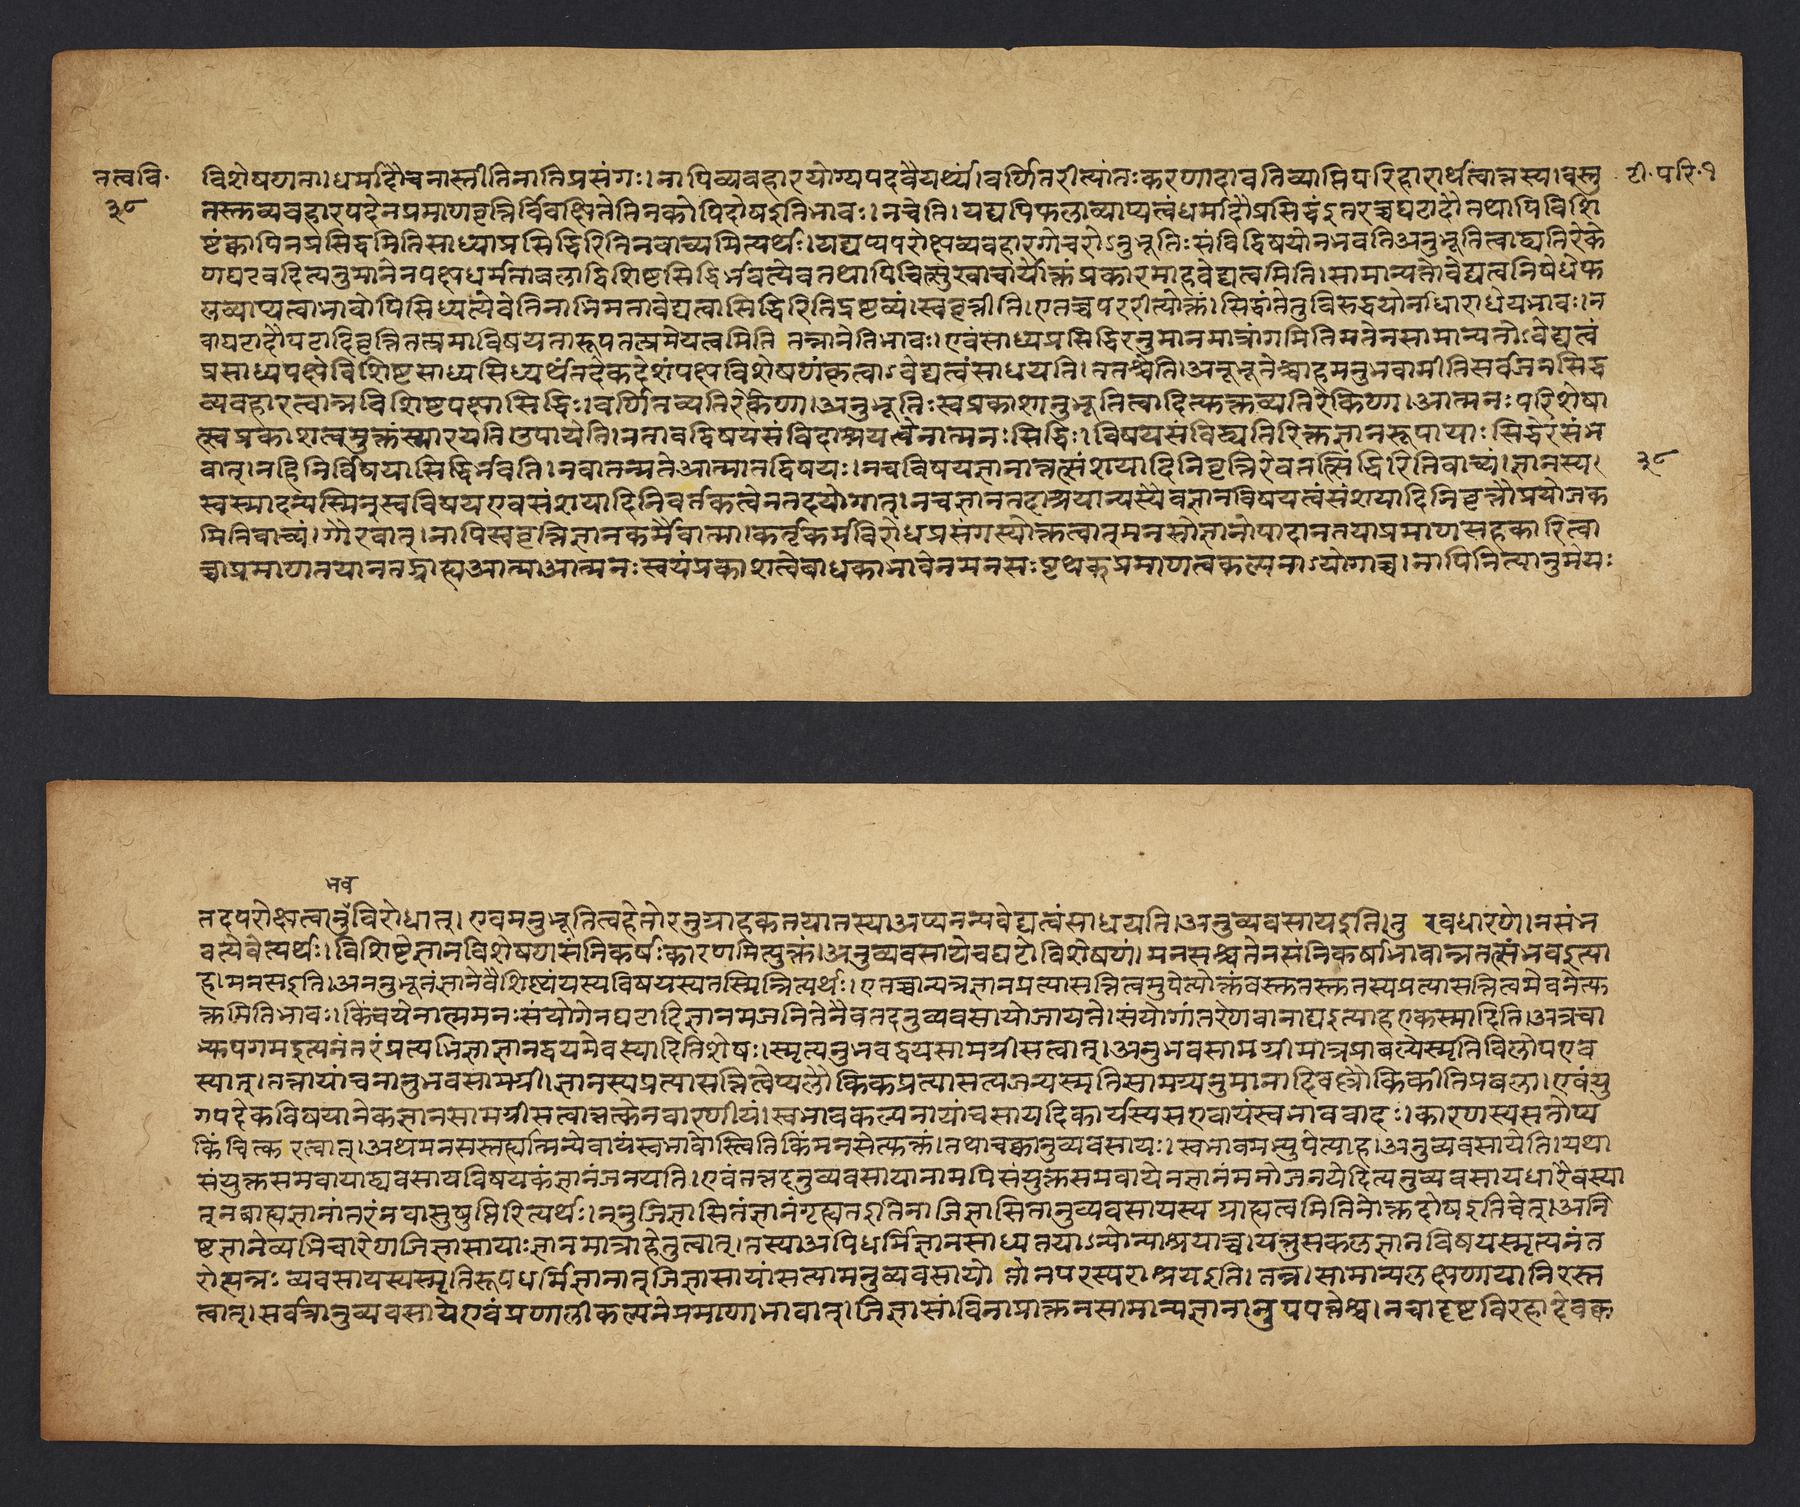 तत्ववि· विशेषणता।धर्मादौचनास्तीतिनातिप्रसंगः।नापिव्यवहारयोग्यपदवैयर्थ्यं।वर्णितरीत्यांतःकरणादावतिव्याप्तिपरिहारार्थत्वात्तस्य।वस्तु टी·परि·१
३८ तस्तव्यवहारपदेनप्रमाणवृत्तिर्विवक्षितेतिनकोपिदोषइतिभावः।नचेति।यद्यपिफलाव्याप्यत्वंधर्मादौप्रसिद्धंइतरच्चघटादौतथापिविशि
ष्टंक्वापिनप्रसिद्धमितिसाध्याप्रसिद्धिरितिनवाच्यमित्यर्थः।यद्यप्यपरोक्षव्यवहारगोचरोऽनुभूतिःसंविद्विषयोनभवतिअनुभूतित्वाद्व्यतिरेके
णघटवदित्यनुमानेनपक्षधर्मताबलाद्विशिष्टसिद्धिर्भवत्येवतथापिचित्सुखाचार्योक्तंप्रकारमाहवेद्यत्वमिति।सामान्यतोवेद्यत्वनिषेधेफ
लव्याप्यत्वाभावोपिसिध्यत्येवेतिनाभिमतावेद्यत्वासिद्धिरितिद्रष्टव्यं।स्ववृत्तीति।एतच्चपररीत्योक्तं।सिद्धांतेतुविरुद्धयोर्नाधाराधेयभावः।न
वाघटादौघटादिवृत्तितत्प्रमाविषयतारूपतत्प्रमेयत्वमिति तन्नानेतिभावः।एवंसाध्यप्रसिद्धिरनुमानमात्रांगमितिमतेनसामान्यतोऽवेद्यत्वं
प्रसाध्यपक्षेविशिष्टसाध्यसिध्यर्थंतदेकदेशंपक्षविशेषणंकृत्वाऽवेद्यत्वंसाधयति।ततश्चेति।अनूभूतेश्चाहमनुभवामीतिसर्वजनसिद्ध
व्यवहारत्वान्नविशिष्टपक्षासिद्धिः।वर्णितव्यतिरेकेणा।अनुभूतिःस्वप्रकाशानुभूतित्वादित्युक्तव्यतिरेकिणा।आत्मनःपरिशेषा
त्स्वप्रकाशत्वमुक्तंस्मारयति उपायेति।नतावद्विषयसंविदाश्रयत्वेनात्मनःसिद्धिः।विषयसंविद्व्यतिरिक्तज्ञानरूपायाःसिद्धेरसंभ
वात्।नहिनिर्विषयासिद्धिर्भवति।नवातन्मतेआत्मातद्विषयः।नचविषयज्ञानात्तत्संशयादिनिवृत्तिरेवतत्सिद्धिरितिवाच्यं।ज्ञानस्य। ३८
स्वस्मादन्यस्मिन्स्वविषयएवसंशयादिनिवर्तकत्वेनतदयोगात्।नचज्ञानतदाश्रयान्यस्यैवज्ञानविषयत्वंसंशयादिनिवृत्तौप्रयोजक
मितिवाच्यं।गौरवात्।नापिस्ववृत्तिज्ञानकर्मैवात्मा।कर्तृकर्मविरोधप्रसंगस्योक्तत्वात्मनसोज्ञानोपादानतयाप्रमाणसहकारित्वा
च्चाप्रमाणतयानतद्ग्राह्यआत्मा।आत्मनःस्वयंप्रकाशत्वेबाधकाभावेनमनसःपृथक्प्रमाणत्वकल्पनाऽयोगाच्च।नापिनित्यानुमेयः
भव
तदपरोक्षत्वानुविरोधात्। एवमनुभूतित्वहेतोरनुग्राहकतयातस्याअप्यनन्यवेद्यत्वंसाधयति।अनुव्यवसायइति।तु रवधारणे।नसंभ
वत्येवेत्यर्थः।विशिष्टज्ञानविशेषणसंनिकर्षःकारणमित्युक्तं।अनुव्यवसायेचघटोविशेषणं।मनसश्चतेनसंनिकर्षाभावान्नतत्संभवइत्या
ह।मनसइति।अननुभूतंज्ञानेवैशिष्ट्यंयस्यविषयस्यतस्मिन्नित्यर्थः।एतच्चान्यत्रज्ञानप्रत्यासत्तित्वमुपेत्योक्तंवस्तुतस्तुतस्यप्रत्यासत्तित्वमेवनेत्यु
क्तमितिभावः।किंचयेनात्ममनःसंयोगेनघटादिज्ञानमजनितेनैवतदनुव्यवसायोजायते।संयोगांतरेणवानाद्यइत्याहएकस्मादिति।अत्रचा
भ्युपगमइत्यनंतरंप्रत्यभिज्ञाज्ञानद्वयमेवस्यादितिशेषः।स्मृत्यनुभवद्वयसामग्रीसत्वात्।अनुभवसामग्रीमात्रप्राबल्येस्मृतिविलोपएव
स्यात्।तत्तायांचनानुभवसामग्री।ज्ञानस्यप्रत्यासत्तित्वेप्यलौकिकप्रत्यासत्यजन्यस्मृतिसामग्र्यनुमानादिवल्लौकिकीतिप्रबला।एवंयु
गपदेकविषयानेकज्ञानसामग्रीसत्वात्तत्केनवारणीयं।स्वभावकल्पनायांचसायदिकार्यस्यसएवायंस्वभाववादः।कारणस्यसतोप्य
किंचित्क रत्वात्।अथमनसस्तह्यात्मन्येवायंस्वभावोस्त्वितिकिंमनसेत्युक्तं।तथाचक्वानुव्यवसायः।स्वभावमभ्युपेत्याह।अनुव्यवसायेति।यथा
संयुक्तसमवायाद्व्यवसायविषयकंज्ञानंजनयति।एवंतत्तदनुव्यवसायानामपिसंयुक्तसमवायेनज्ञानंमनोजनयेदित्यनुव्यवसायधारैवस्या
न्नबाह्यज्ञानांतरंनवासुषुप्तिरित्यर्थः।ननुजिज्ञासितंज्ञानंगृह्यतइतिनाजिज्ञासितानुव्यवसायस्य ग्राह्यत्वमितिनोक्तदोषइतिचेत्।अनि
ष्टज्ञानेव्यभिचारेणजिज्ञासायाःज्ञानमात्राहेतुत्वात्।तस्याअपिधर्मिज्ञानसाध्यतयाऽन्योन्याश्रयाच्च।यत्तुसकलज्ञानविषयस्मृत्यनंत
रोत्पन्नः व्यवसायस्यस्मृतिरूपधर्मिज्ञानात्जिज्ञासायांसत्यामनुव्यवसायो तोनपरस्पराश्रयइति।तन्न।सामान्यलक्षणायानिरस्त
त्वात्।सर्वत्रानुव्यवसायेएवंप्रणालीकल्पनेप्रमाणाभावात्।जिज्ञासांविनाप्राक्तनसामान्यज्ञानानुपपत्तेश्च।नचादृष्टविरहादेवक्व